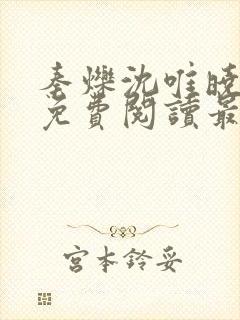 秦爍沈唯曉
免費閱讀最
宮本鈴妥